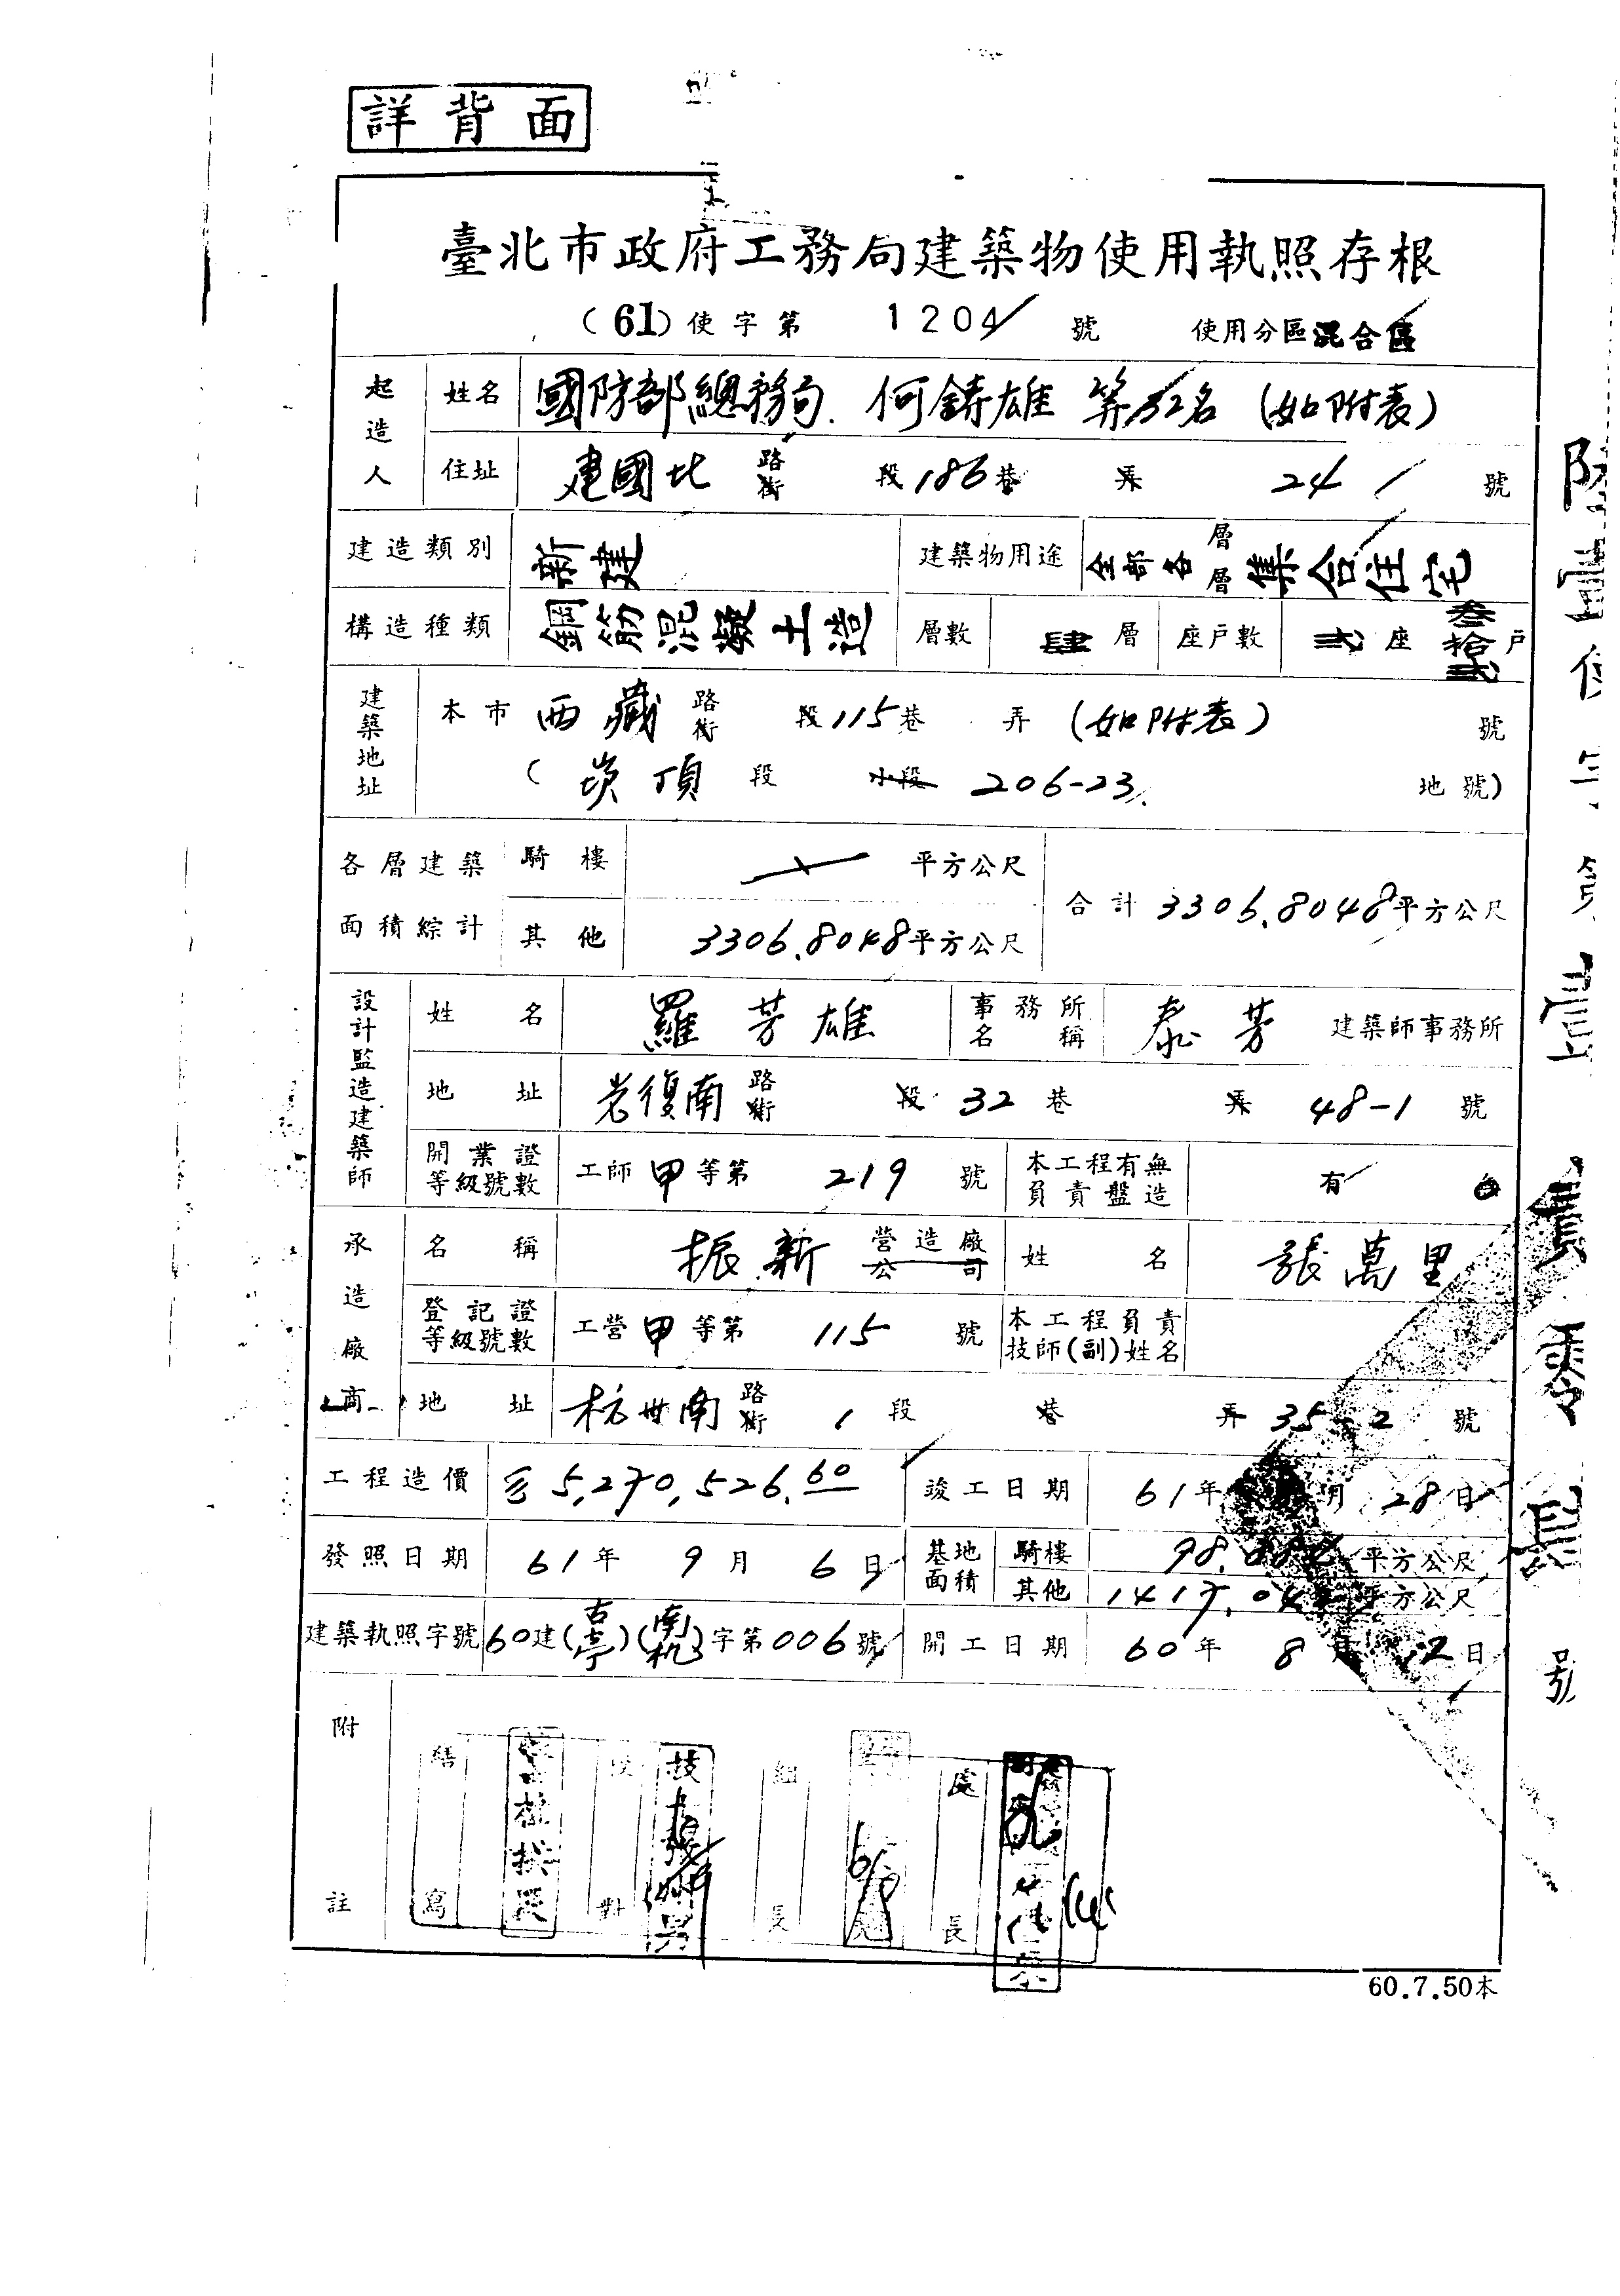 詳背面
臺北市政府工務局建築物使用執照存根
(61)使字第 1204 號 使用分區混合區
起造人 姓名 國防部總務局.何鑄雄 等32名 (如附表)
住址 建國北 路街 段186巷 弄 24 號
建造類別 新建 建築物用途 全部各層層集合住宅
構造種類 鋼筋混凝土造 層數 肆層 座戶數 貳座叁拾貳戶
建築地址 本市 西藏 路街 段115巷 弄 (如附表) 號
(崁頂 段 小段 206-23 地號)
各層建築面積綜計 騎樓 平方公尺
其他 3306.8048平方公尺 合計 3306.8048平方公尺
設計監造建築師 姓名 羅芳雄 事務所名稱 泰芳 建築師事務所
地址 光復南 路街 段 32 巷 弄 48-1 號
開業證等級號數 工師 甲 等第 219 號 本工程有無負責監造 有
承造廠商 名稱 振新 營造廠公司 姓名 張萬里
登記證等級號數 工營 甲 等第 115 號 本工程負責技師(副)姓名
地址 杭州南 路街 1 段 巷 弄 35-2 號
工程造價 5,270,526.60 竣工日期 61年 月 28日
發照日期 61年 9月 6日 基地面積 騎樓 平方公尺
其他 平方公尺
建築執照字號 60建(古亭)(南机)字第006號 開工日期 60年 8月 日
附註
繕寫 校對 技 組長 處長
60.7.50本